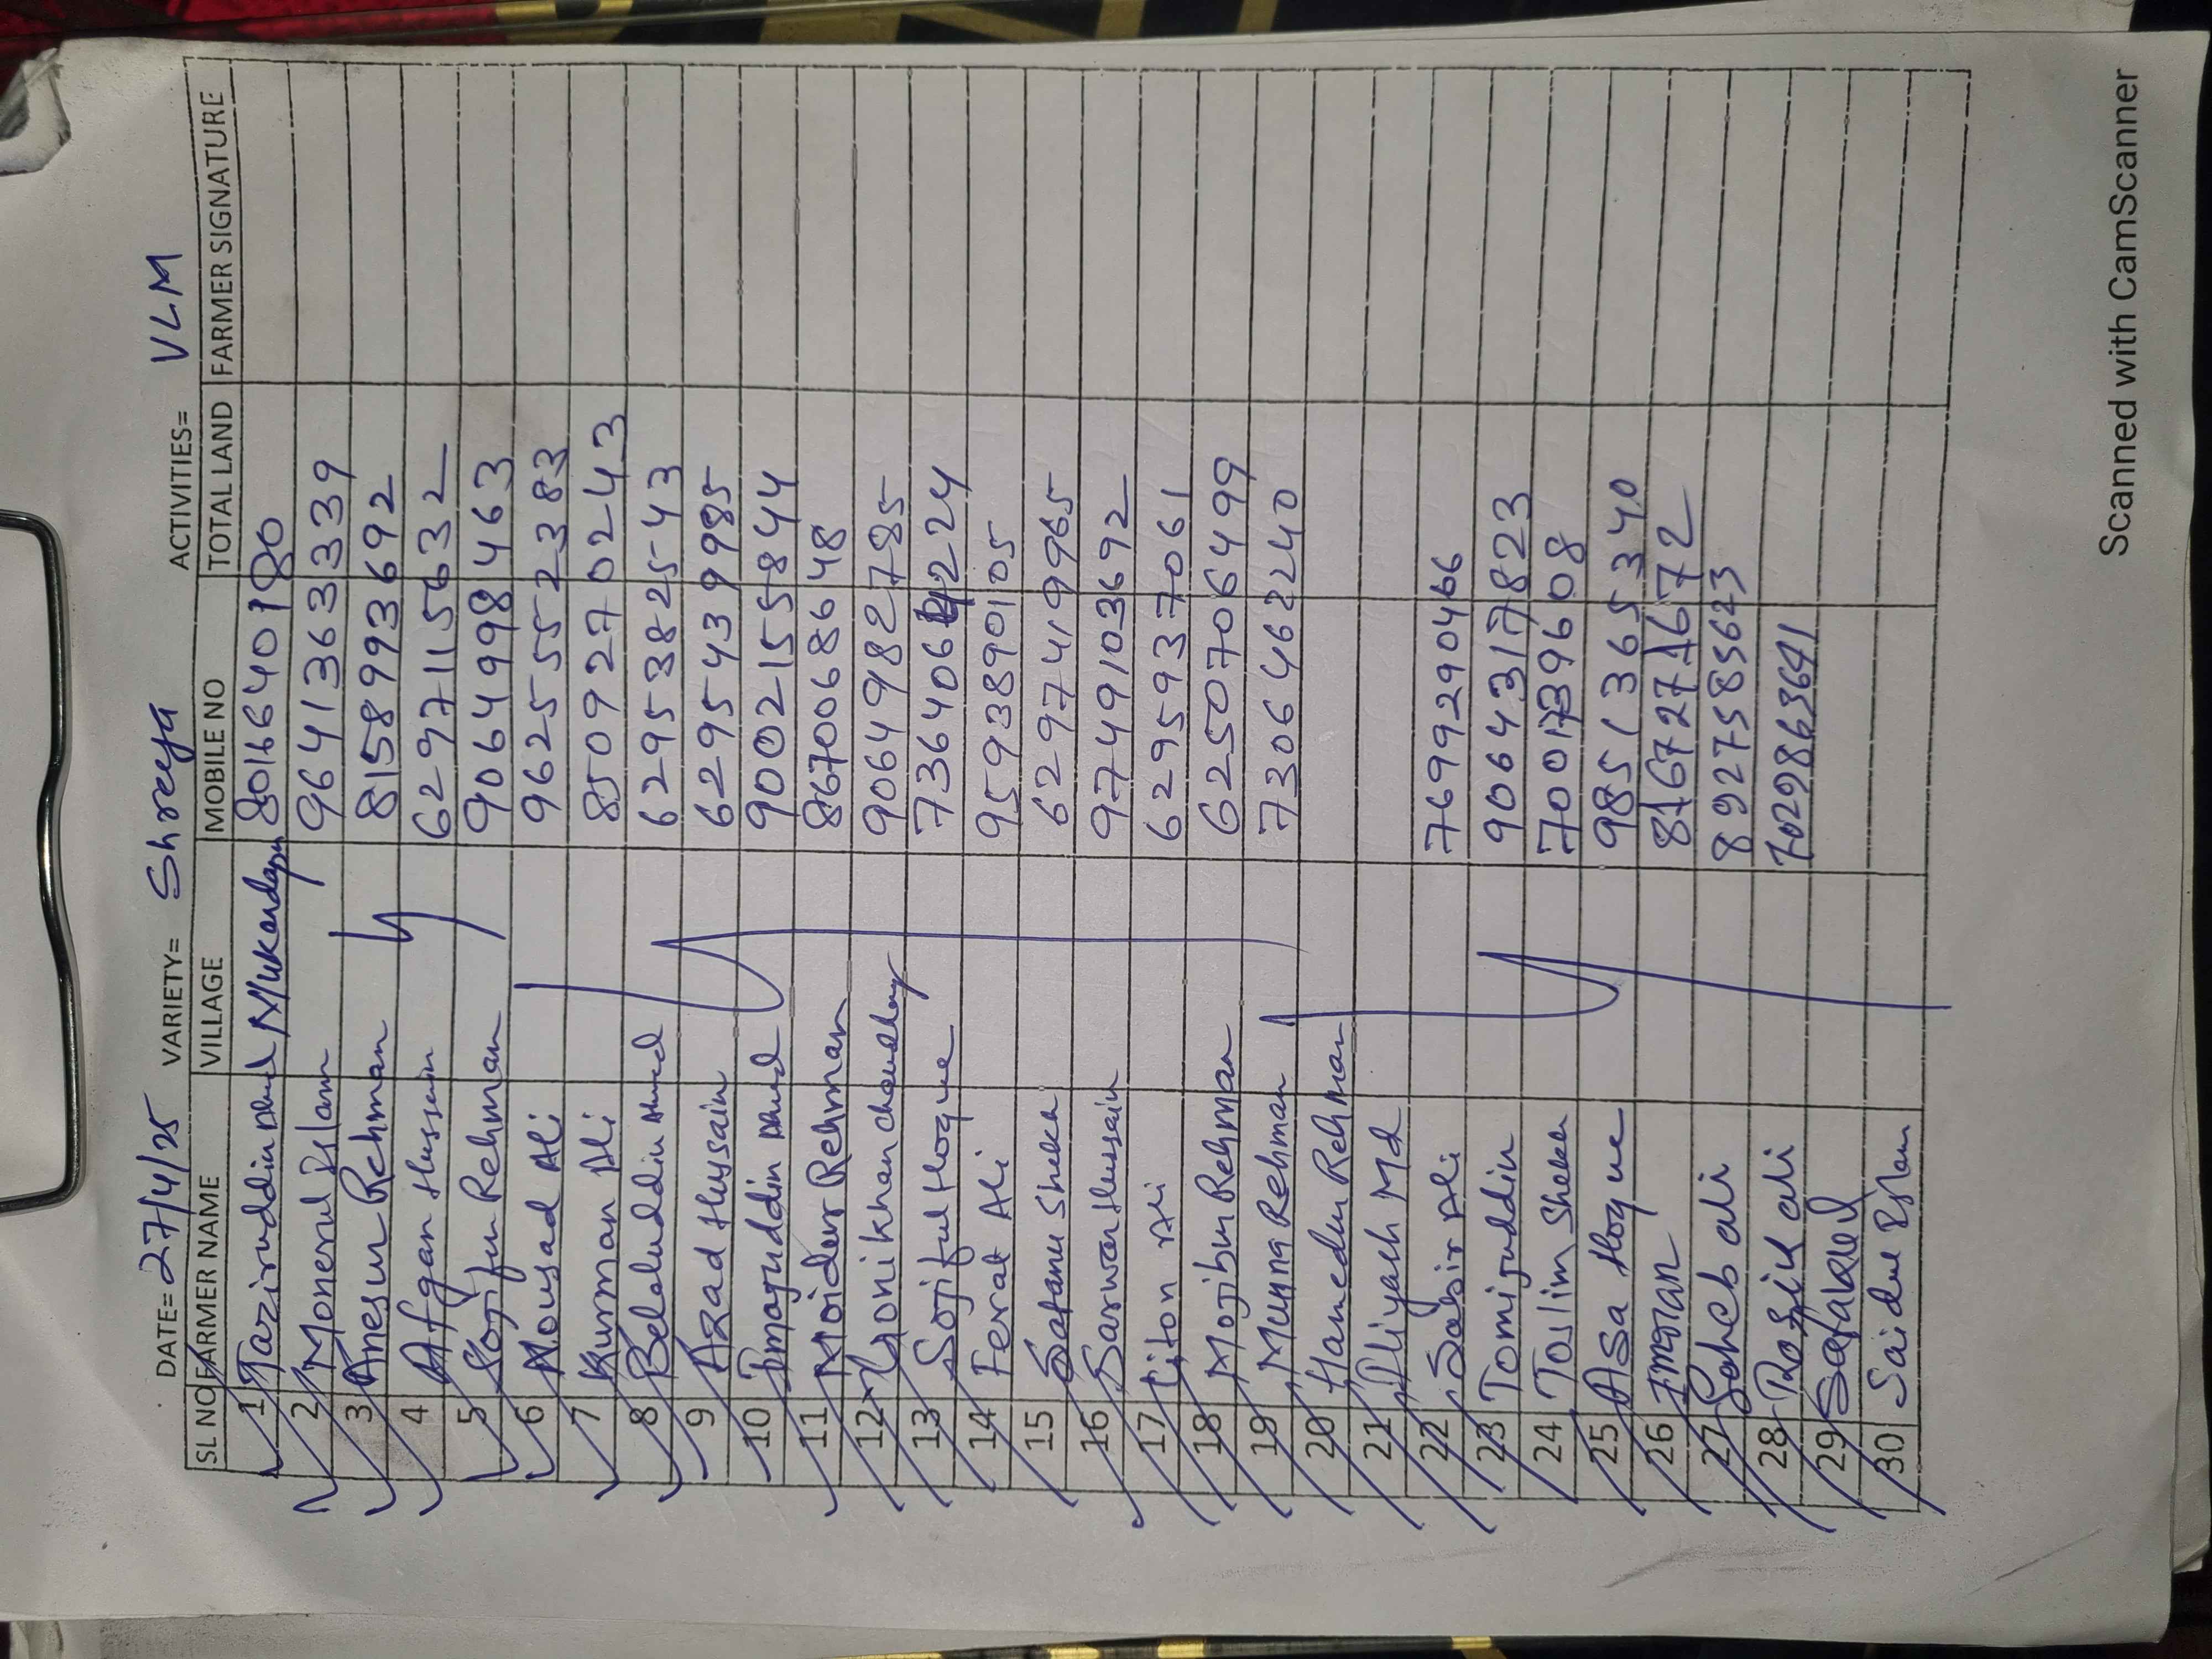 DATE= 27/4/25 VARIETY= Shreya ACTIVITIES= VLM
SL NO FARMER NAME VILLAGE MOBILE NO TOTAL LAND FARMER SIGNATURE
1 Taziruddin Ahmed 8016640180
2 Monerul Islam 9641363339
3 Anesur Rehman 8158993692
4 Afgan Hussein 6297115632
5 Sofijur Rehman 9064998463
6 Nousad Ali 9625552383
7 Nurman Ali 8509270243
8 Belaluddin Ahmed 6295382543
9 Azad Hussain 6295439985
10 Imajuddin Ahmed 9002155844
11 Moidur Rehman 8670068648
12 Monikhan choudhury 9064982785
13 Sojiful Hoque 736406 2224
14 Ferat Ali 9593890105
15 Satanu Sheka 6297419965
16 Sarwan Hussain 9749103692
17 Liton Ali 6295937061
18 Mojibur Rehman 6250706499
19 Munna Rehman 7306462240
20 Hamedur Rehman
21 Iliyash Md
22 Sabir Ali 7699290466
23 Tomijuddin 9064317823
24 Toslim Sheka 7001396608
25 Asa Hoque 9851365340
26 Imran 8167271672
27 Soheb ali 8927585623
28 Rafik ali 7029863641
29
30 Saidul Islam
Scanned with CamScanner